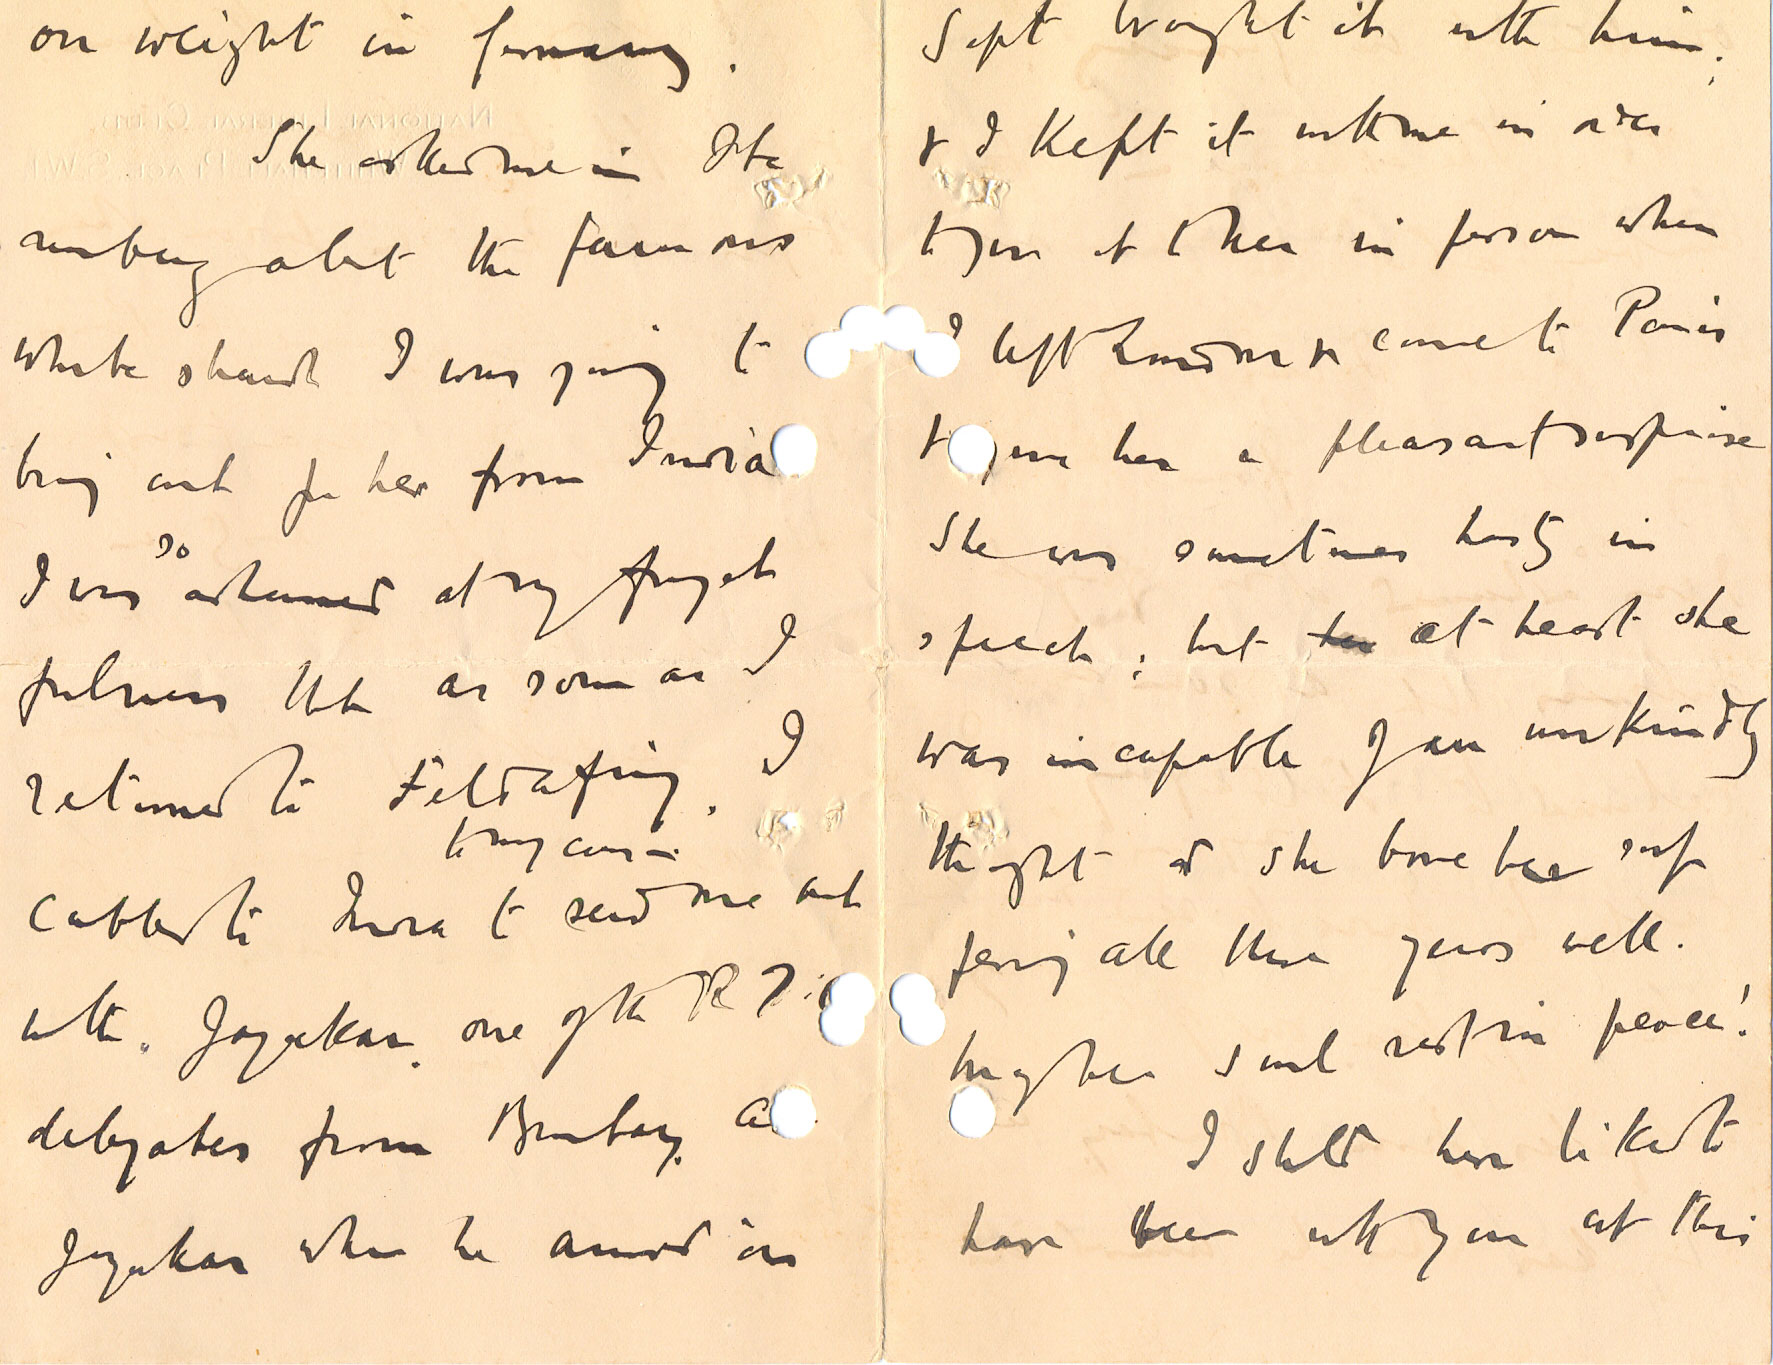 on weight in Germany.
NATIONAL LIBERAL CLUB,
WHITEHALL PLACE, S.W.1.
She asked me in Ste
rnberg about the famous
white shawl I was going to
bring out for her from India
I was so ashamed at my forget
fulness that as soon as I
returned to Feldafing, I
cabled to India to my cousin to send me out
with Jayakar, one of the R.T.
delegates from Bombay. And
Jayakar when he arrived in
Sept brought it with him;
& I kept it with me in order
to give it to her in person when
I left London & came to Paris
to give her a pleasant surprise
She was sometimes hasty in
speech; but at heart she
was incapable of an unkindly
thought and she bore her suf
fering all these years well.
May her soul rest in peace!
I shld have liked to
have been with you at this